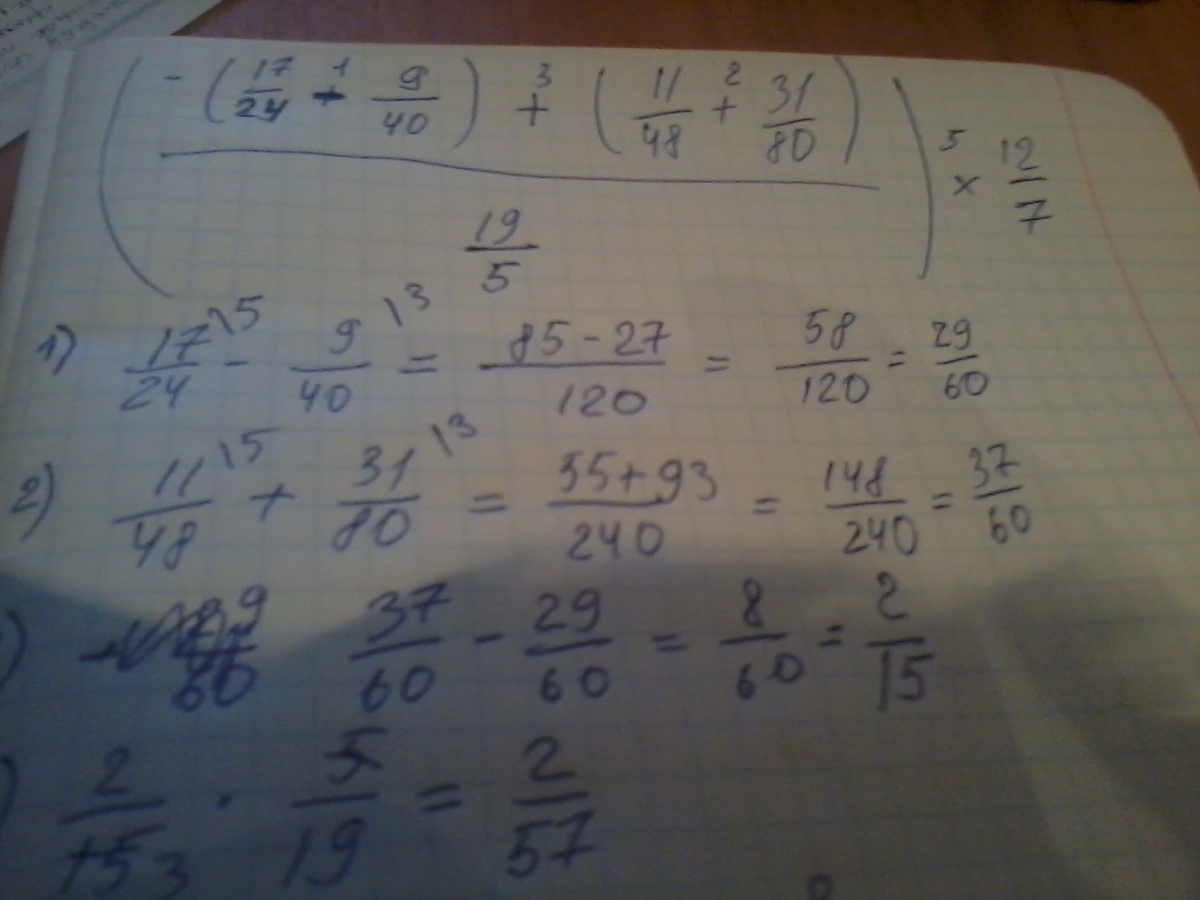 ( (-(17/24 - ¹ 9/40) + ³ (11/48 + ² 31/80)) / (19/5) ) × ⁵ 12/7
1) 17/24 \5 - 9/40 \3 = (85-27)/120 = 58/120 = 29/60
2) 11/48 \5 + 31/80 \3 = (55+93)/240 = 148/240 = 37/60
) 37/60 - 29/60 = 8/60 = 2/15
) 2/15 3 · 5/19 = 2/57